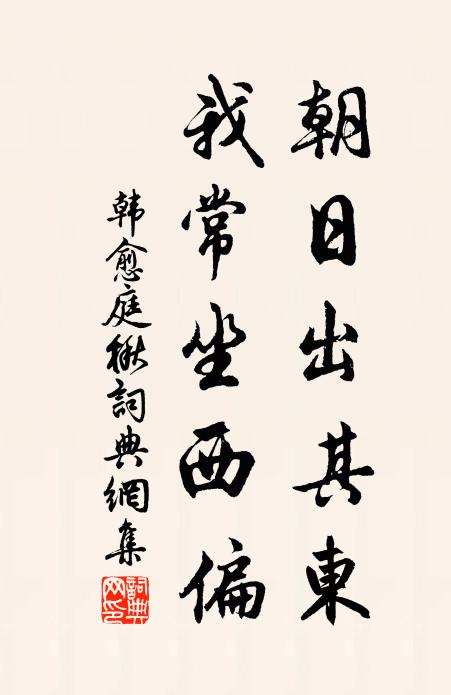 朝日出其東
我常坐西偏
韩愈庭楸詞典網集
詞典网印